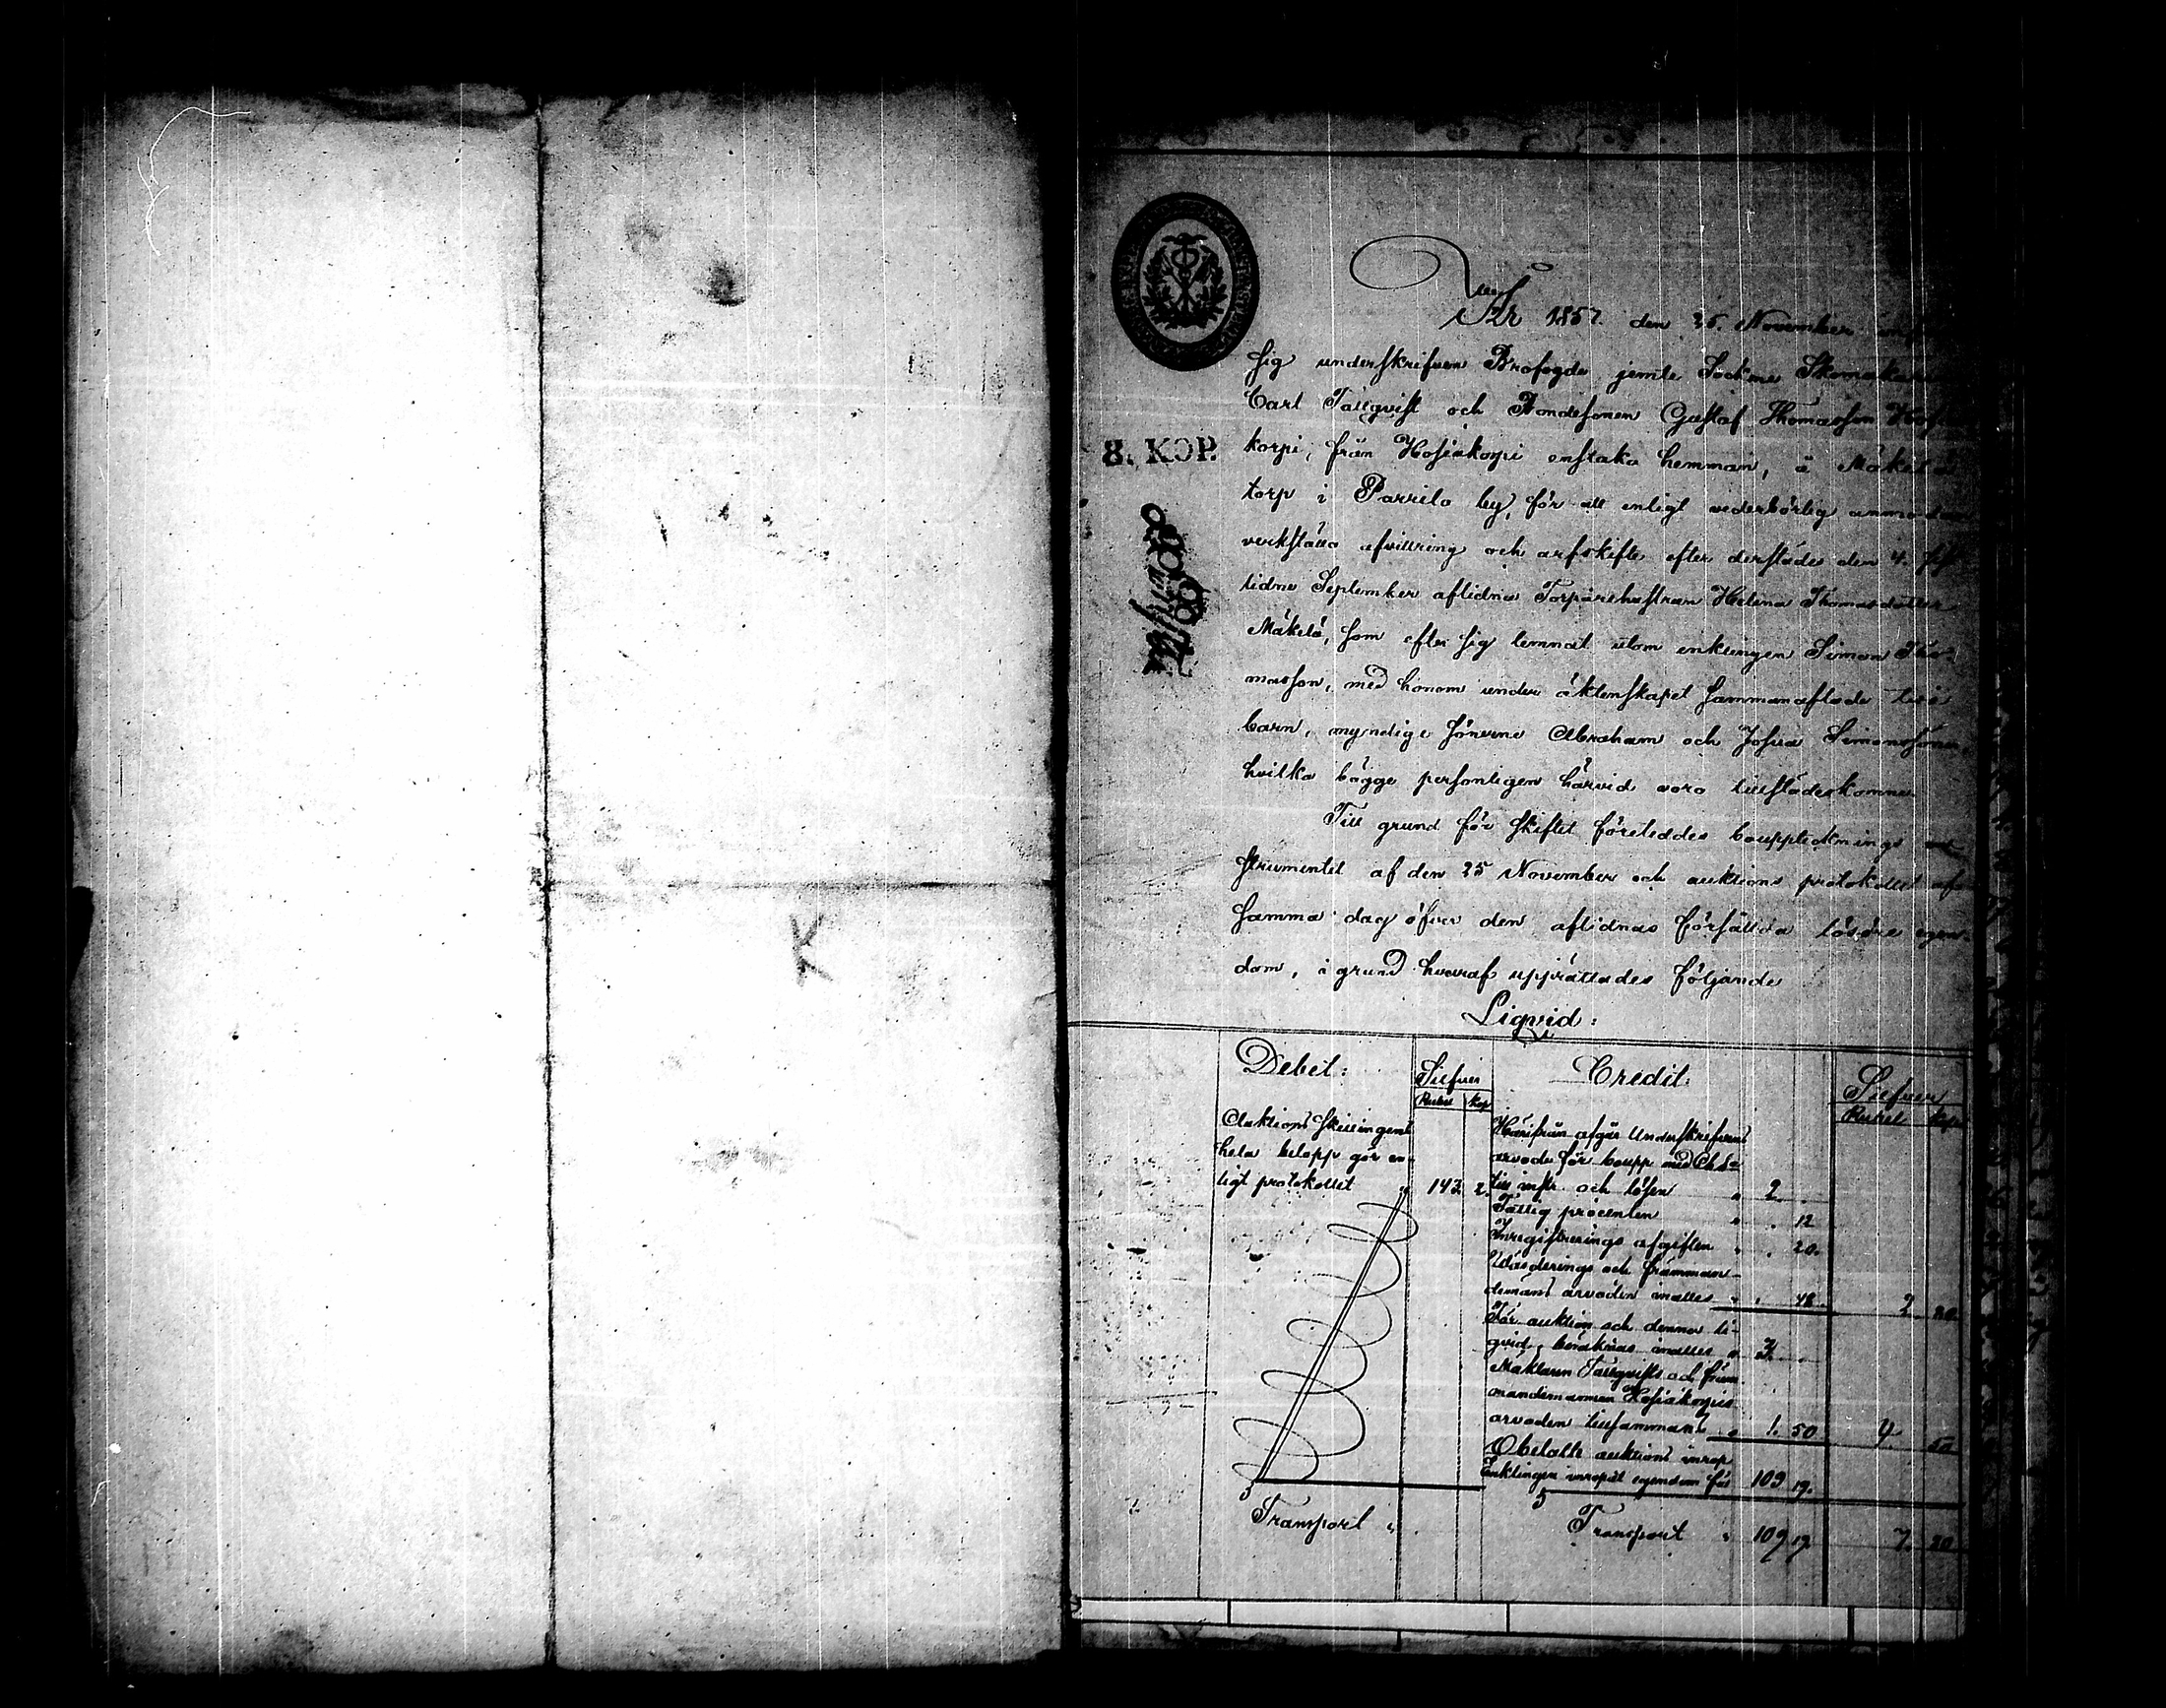 År 1857. den 25. November
Sig underskrifven Brofogde jemte Sockne Skomakare
Carl Tallqvist och Bondesonen Gustaf Thomasson
8. KOP.
korpi, från Hosiakorpi enstaka hemman, å Mäkelä
torp i Parrila by, för att enligt vederbörlig
verkställa afvittring och arfskifte efter derstädes den 4.
tidne September aflidna Torparehustrun Helena Thomasdotter
Mäkelä, som efter sig lemnat utom enklingen Simon Tho-
masson, med honom under äktenskapet sammanaflade två
barn, myndige sönerne Abraham och Josua Simonssöner,
hvilka bägge personligen härvid voro tillstädeskomne.
Till grund för skiftet företeddes boupptecknings
strumentet af den 25 November och auktions protokollet af
samma dag öfver den aflidnas förfallda lösöre egen-
dom, i grund hvaraf upprättades följande
Liqvid:
Debet: Silfver Credit: Silfver
Rubel Kop Rubel Kop
Auktions skillingens
hela belopp gör en-
ligt protokollet " 143. 2.
Härifrån afgår Underskrifvens
arvode för boupp
och lösen " 2 .
Fattig procenten " . 12
Inregistrerings afgiften " . 20.
Värderings och främman-
demäns arvoden inalles " . 48 2 80
För auktion och denna li-
qvid, beräknas inalles " 3. .
Mäklaren Tallqvists och främ
mandemannen Hosiakorpis
arvoden tillsammans " 1. 50 4 50
Obetalte auktions inrop
Enklingen inropat egendom för 109 19.
Transport " Transport " 109 19 7 30